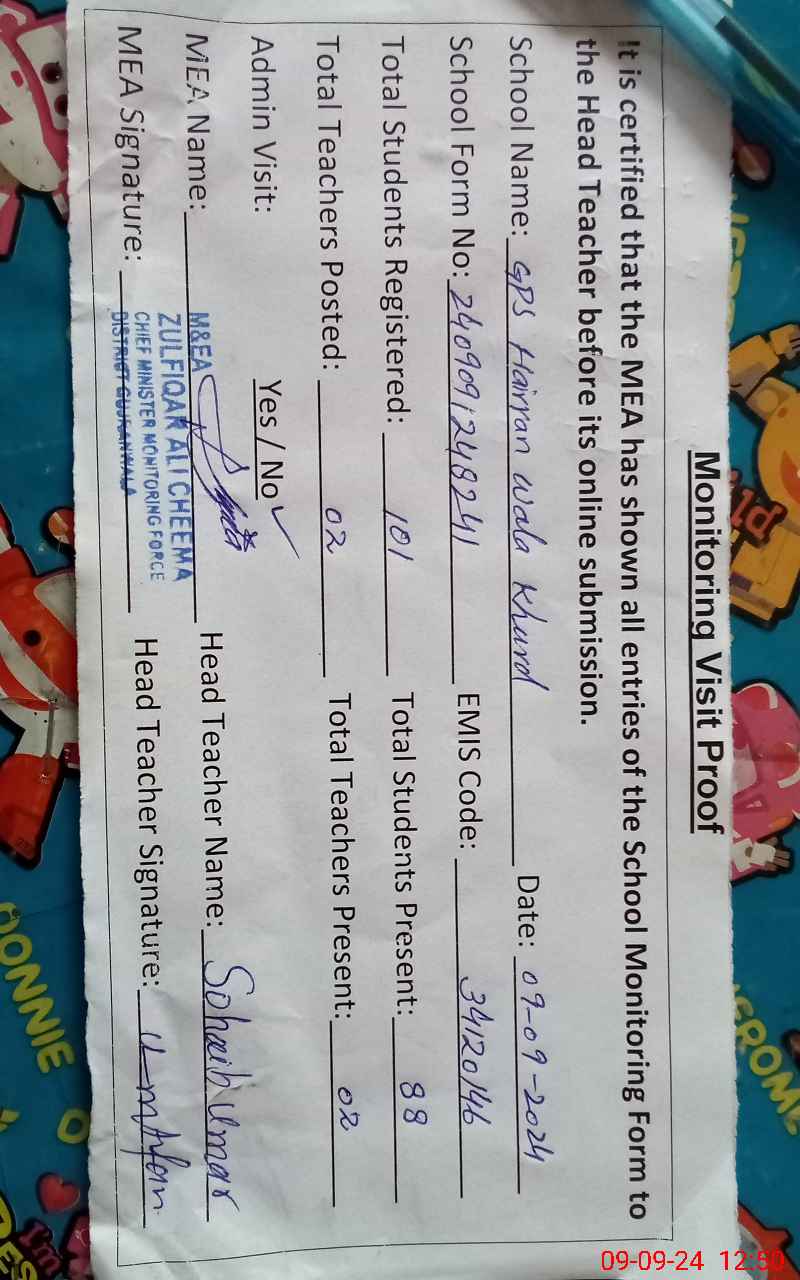 Monitoring Visit Proof
It is certified that the MEA has shown all entries of the School Monitoring Form to
the Head Teacher before its online submission.
School Name: GPS Hairran wala Khurd Date: 09-09-2024
School Form No: 2409091248241 EMIS Code: 34120146
Total Students Registered: 101 Total Students Present: 88
Total Teachers Posted: 02 Total Teachers Present: 02
Admin Visit: Yes / No ✓
MEA Name: Head Teacher Name: Sohaib Umar
MEA Signature: Head Teacher Signature:
M&EA
ZULFIQAR ALI CHEEMA
CHIEF MINISTER MONITORING FORCE
DISTRICT GUJRANWALA
ild
JEROME
DONNIE
I'm
09-09-24 12:50